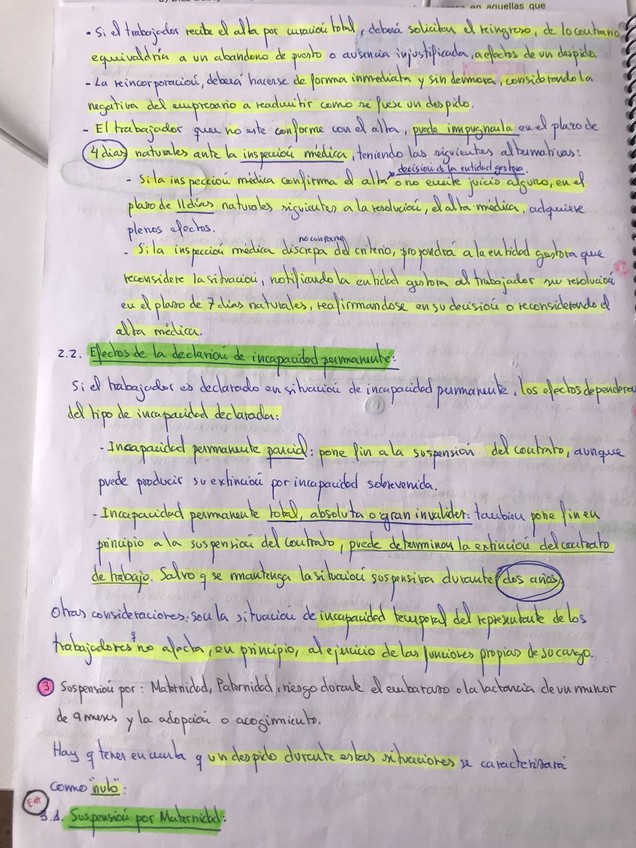 en aquellas que
- Si el trabajador recibe el alta por curación total, deberá solicitar el reingreso, de lo contrario
equivaldría a un abandono de puesto o ausencia injustificada, a efectos de un despido.
- La reincorporación, deberá hacerse de forma inmediata y sin demora, considerando la
negativa del empresario a readmitir como si fuese un despido.
- El trabajador que no este conforme con el alta, puede impugnarla en el plazo de
4 días naturales ante la inspección médica, teniendo las siguientes alternativas:
decisión de la entidad gestora
- Si la inspección médica confirma el alta o no emite juicio alguno, en el
plazo de 11 días naturales siguientes a la resolución, el alta médica, adquiere
plenos efectos.
no conforme
- Si la inspección médica discrepa del criterio, propondrá a la entidad gestora que
reconsidere la situación, notificando la entidad gestora al trabajador su resolución
en el plazo de 7 días naturales, reafirmandose en su decisión o reconsiderando el
alta médica.
2.2. Efectos de la declarión de incapacidad permanente:
Si el trabajador es declarado en situación de incapacidad permanente, los efectos dependerán
del tipo de incapacidad declarada:
- Incapacidad permanente parcial: pone fin a la suspensión del contrato, aunque
puede producir su extinción por incapacidad sobrevenida.
- Incapacidad permanente total, absoluta o gran invalidez: tambien pone fin en
principio a la suspensión del contrato, puede determinar la extinción del contrato
de trabajo. Salvo q se mantenga la situación suspensiva durante dos años.
Otras consideraciones: son la situación de incapacidad temporal del representante de los
trabajadores q no afecta, en principio, al ejercicio de las funciones propias de su cargo.
3 Suspensión por: Maternidad, Paternidad, riesgo durante el embarazo o la lactancia de un menor
de 9 meses y la adopción o acogimiento.
Hay q tener en cuenta q un despido durante estas situaciones se caracterizará
como "nulo":
3.1. Suspensión por Maternidad: